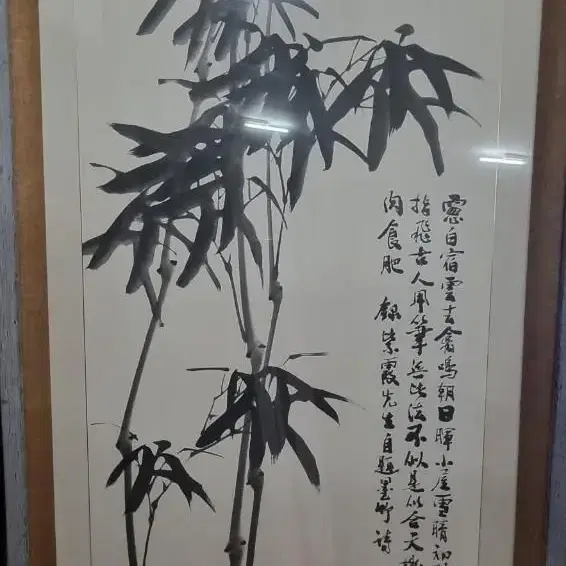 窻白宿雲去禽鳴朝日暉小屋雪晴初
指飛古人用筆無此法不似是似合天機
肉食肥 錄紫霞先生自題墨竹詩